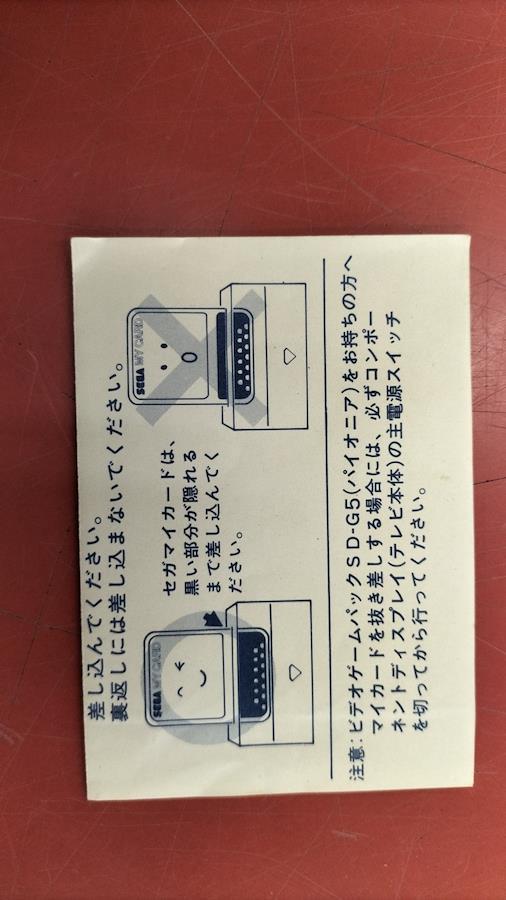 差し込んでください。
裏返しには差し込まないでください。
SEGA MY CARD
セガマイカードは、
黒い部分が隠れる
まで差し込んでく
ださい。
SEGA MY CARD
注意：ビデオゲームパックＳＤ-Ｇ5(パイオニア)をお持ちの方へ
マイカードを抜き差しする場合には、必ずコンポー
ネントディスプレイ(テレビ本体)の主電源スイッチ
を切ってから行ってください。